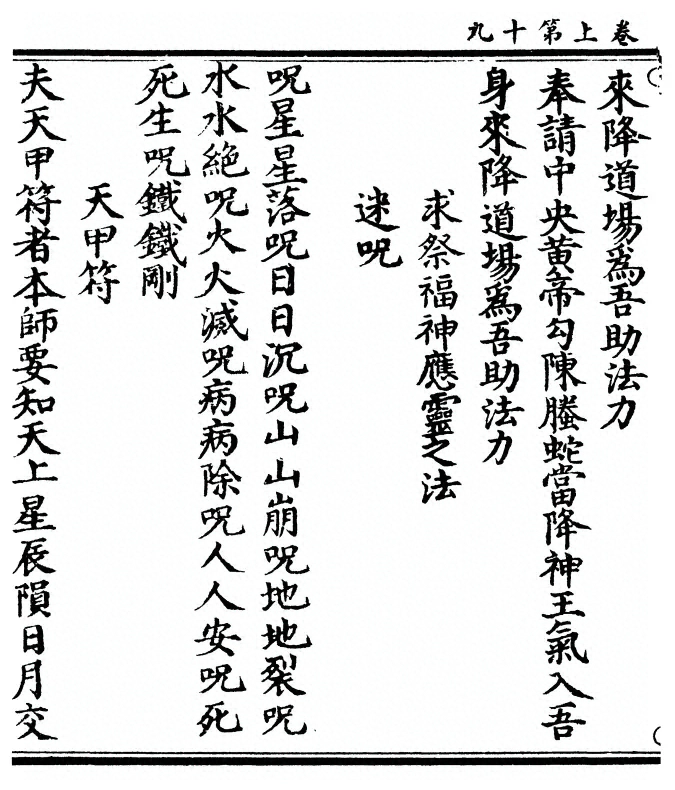 卷上第十九
來降道場爲吾助法力
奉請中央黃帝勾陳螣蛇當降神王氣入吾
身來降道場爲吾助法力
求祭福神應靈之法
迷咒
咒星星落咒日日沉咒山山崩咒地地裂咒
水水絶咒火火滅咒病病除咒人人安咒死
死生咒鐵鐵剛
天甲符
夫天甲符者本師要知天上星辰隕日月交